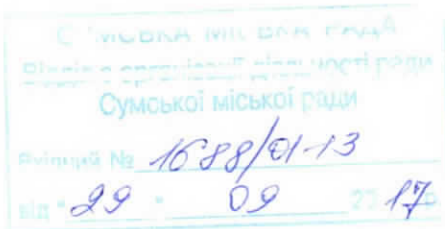 СУМСЬКА МІСЬКА РАДА
Відділ з організації діяльності ради
Сумської міської ради
Вхідний № 1688/01-13
від "29" 09 2017